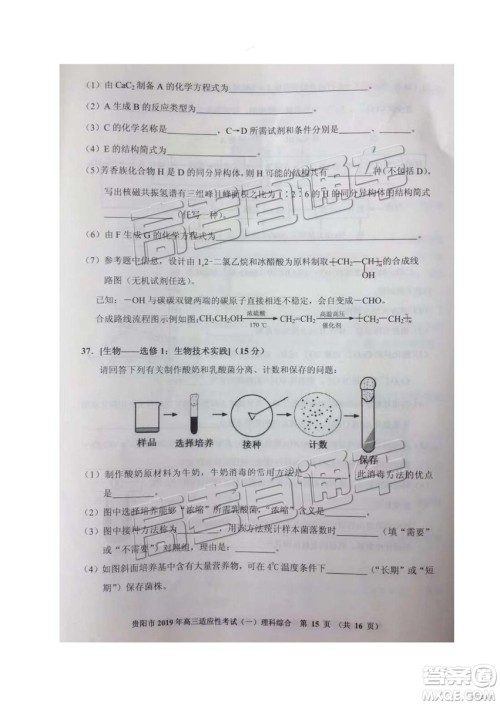 (1)由 CaC₂ 制备 A 的化学方程式为
(2)A 生成 B 的反应类型为
(3)C 的化学名称是，C→D 所需试剂和条件分别是
(4)E 的结构简式为
(5)芳香族化合物 H 是 D 的同分异构体，则 H 可能的结构共有种（不包括 D），
写出核磁共振氢谱有三组峰且峰面积之比为 1∶2∶6 的 H 的同分异构体的结构简式
(任写一种)。
(6)由 F 生成 G 的化学方程式为
(7)参考题中信息，设计由 1,2-二氯乙烷和冰醋酸为原料制取 CH₂—CH OH 的合成线
路图（无机试剂任选）。
已知：—OH 与碳碳双键两端的碳原子直接相连的结构不稳定，会自动异构为—CHO。
合成路线流程图示例如：CH₃CH₂OH 浓硫酸 170℃ CH₂=CH₂ 高温高压 催化剂 CH₂—CH₂
37．[生物——选修 1：生物技术实践]（15 分）
请回答下列有关制作酸奶和乳酸菌分离、计数和保存的问题：
样品 选择培养 接种 计数 保存
(1)制作酸奶原材料为牛奶，牛奶消毒的常用方法是，此消毒方法的优点
是
(2)图中选择培养能够“浓缩”乳酸菌，“浓缩”含义是
(3)图中接种方法称为，用该方法统计样本菌落数时，（填“需要”
或“不需要”）对照组，这是因为
(4)如图斜面培养基中含大量营养物，可在 4℃条件下（“长期”或“短
期”）保存菌株。
贵阳市 2019 年高三适应性考试（一）理科综合 第 15 页 （共 16 页）
高考直通车
高考直通车
答案圈